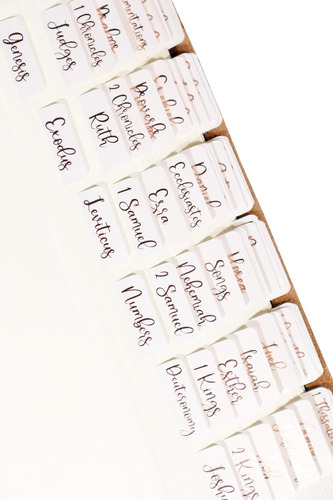 Genesis
Judges
1 Chronicles
Psalms
Lamentations
Exodus
Ruth
2 Chronicles
Proverbs
Ezekiel
Leviticus
1 Samuel
Ezra
Ecclesiastes
Daniel
Numbers
2 Samuel
Nehemiah
Songs
Hosea
Deuteronomy
1 Kings
Esther
Isaiah
Joel
Joshua
2 Kings